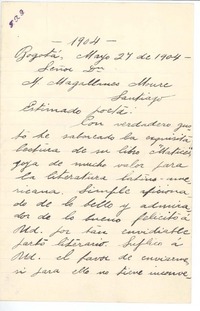 — 1904 —
Bogotá, Mayo 27 de 1904 —
Señor Dn
M. Magallanes Moure
Santiago
Estimado poeta:
Con verdadero gus-
to he saboreado la exquisita
lectura de su libro
joya de mucho valor para
la literatura latino-ame-
ricana. Simple aficiona-
do de lo bello y admira-
dor de lo bueno felicito á
Ud. por tan envidiable
parto literario. Suplico á
Ud. el favor de enviarme,
si para ello no tiene inconve-